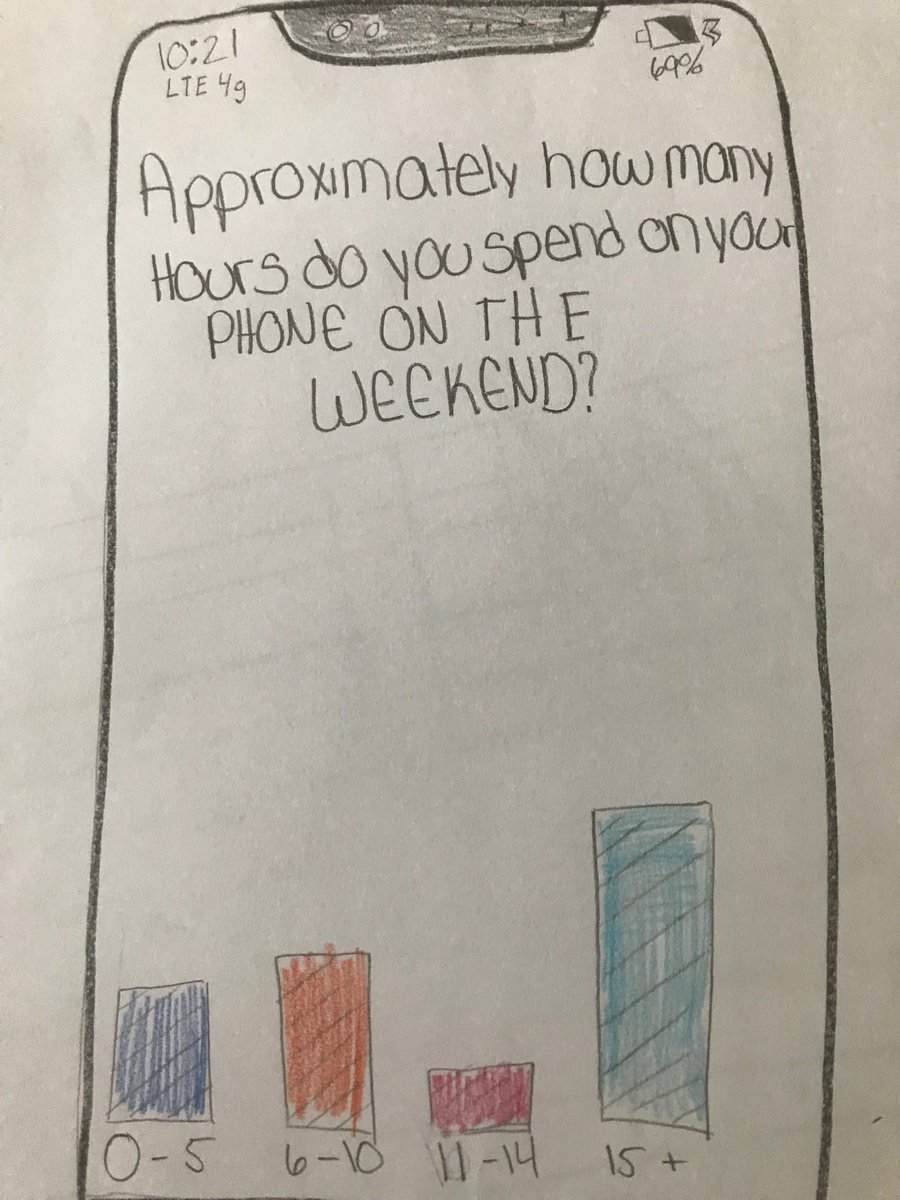 10:21
LTE 4g
69%
Approximately how many
Hours do you spend on your
PHONE ON THE
WEEKEND?
0-5 6-10 11-14 15+